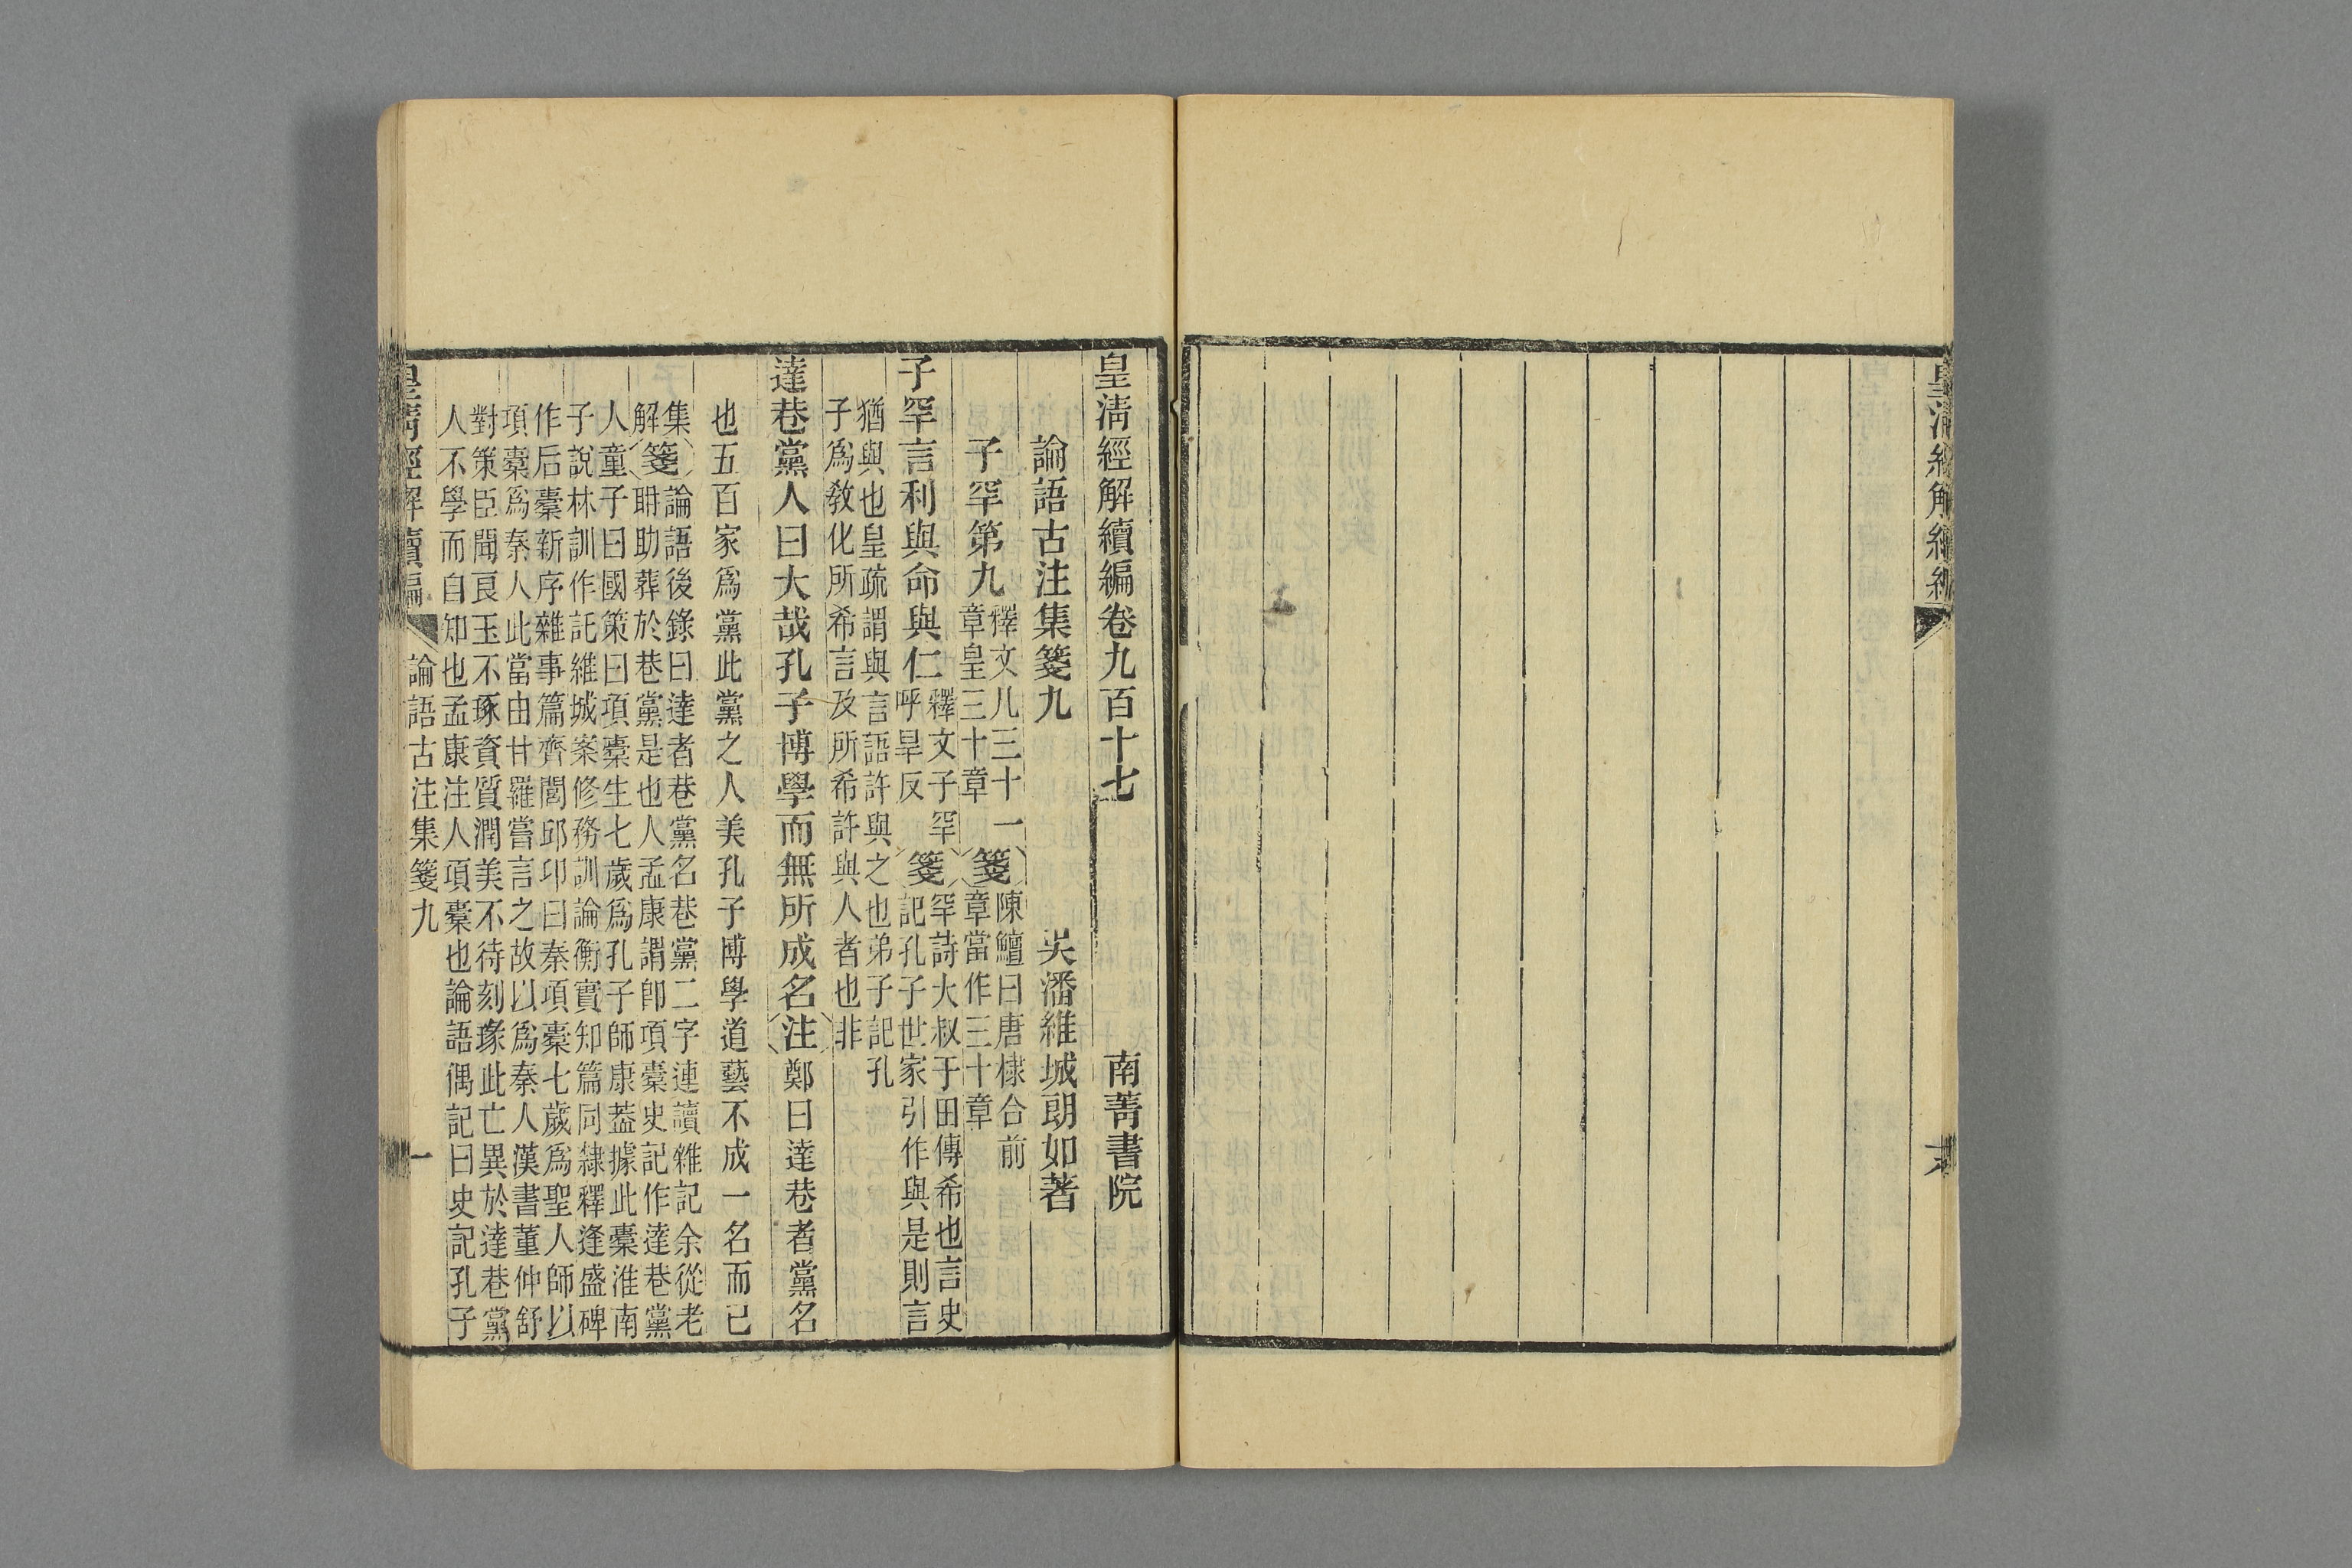 皇清經解續編
大
皇清經解續編卷九百十七
南菁書院
論語古注集箋九
吳潘維城朗如著
子罕第九
釋文凡三十一
章皇三十章
箋
陳鱣曰唐棣合前
章當作三十章
子罕言利與命與仁
釋文子罕
呼旱反
箋
罕詩大叔于田傳希也言史
記孔子世家引作與是則言
猶與也皇疏謂與言語許與之也弟子記孔
子爲敎化所希言及所希許與人者也非
達巷黨人曰大哉孔子博學而無所成名注鄭曰達巷者黨名
也五百家爲黨此黨之人美孔子博學道藝不成一名而已
集
解
箋
論語後錄曰達者巷黨名巷黨二字連讀雜記余從老
聃助葬於巷黨是也人孟康謂卽項橐史記作達巷黨
人童子曰國策曰項橐生七歲爲孔子師康葢據此橐淮南
子說林訓作託維城案修務訓論衡實知篇同隸釋逢盛碑
作后橐新序雜事篇齊閭邱卭曰秦項橐七歲爲聖人師以
項橐爲秦人此當由甘羅嘗言之故以爲秦人漢書董仲舒
對策臣聞良玉不琢資質潤美不待刻瑑此亡異於達巷黨
人不學而自知也孟康注人項橐也論語偶記曰史記孔子
皇清經解續編
論語古注集箋九
一